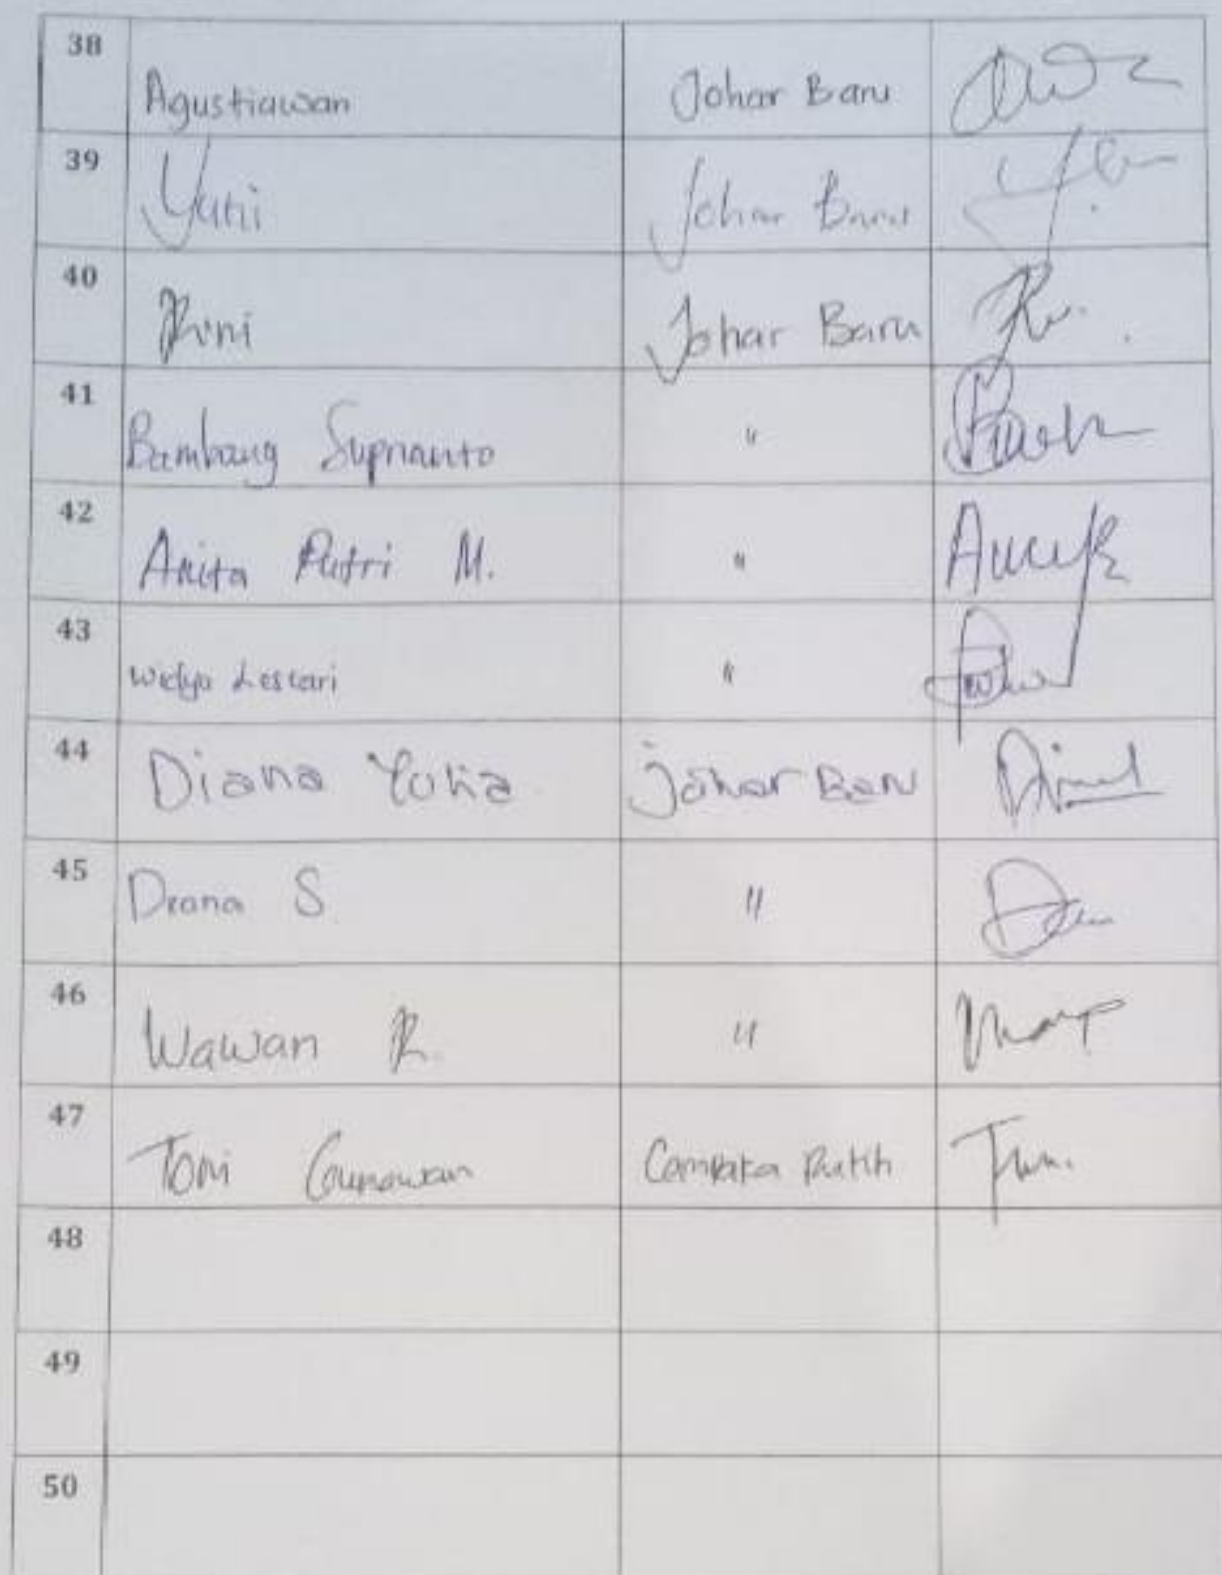 38 Agustiawan Johar Baru
39 Yuni Johar Baru
40 Roni Johar Baru
41 Bambang Suprianto "
42 Anita Putri M. "
43 Widya Lestari "
44 Diana Yulia Johar Baru
45 Diana S. "
46 Wawan R. "
47 Toni Gunawan Cempaka Putih
48
49
50